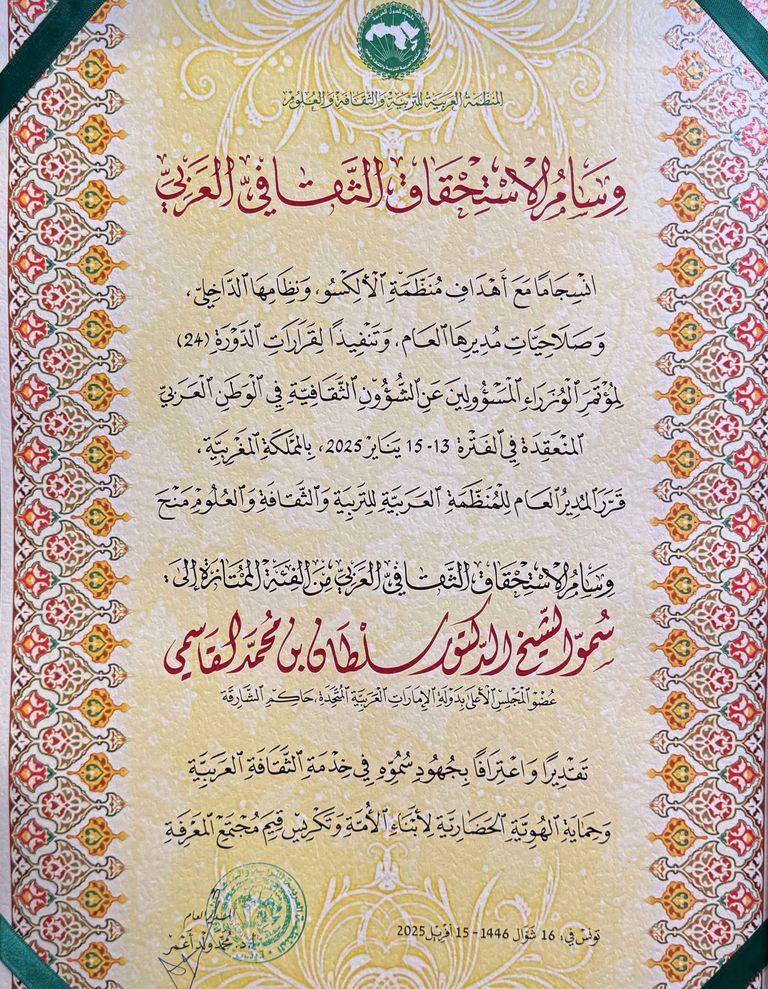 المنظمة العربية للتربية والثقافة والعلوم
وِسَامُ الاسْتِحْقَاقِ الثَّقَافِيِّ العَرَبِيِّ
انْسِجَامًا مَعَ أَهْدَافِ مُنَظَّمَةِ الأَلِكْسُو، وَنِظَامِهَا الدَّاخِلِيِّ،
وَصَلَاحِيَّاتِ مُدِيرِهَا العَام، وَتَنْفِيذًا لِقَرَارَاتِ الدَّوْرَةِ (24)
لِمُؤْتَمَرِ الوُزَرَاءِ المَسْؤُولِينَ عَنِ الشُّؤُونِ الثَّقَافِيَّةِ فِي الوَطَنِ العَرَبِيِّ
المُنْعَقِدَةِ فِي الفَتْرَةِ 13-15 يَنَايِرْ 2025، بِالمَمْلَكَةِ المَغْرِبِيَّةِ،
قَرَّرَ المُدِيرُ العَام لِلْمُنَظَّمَةِ العَرَبِيَّةِ لِلتَّرْبِيَةِ وَالثَّقَافَةِ وَالعُلُومِ مَنْحَ
وِسَامُ الاسْتِحْقَاقِ الثَّقَافِيِّ العَرَبِيِّ مِنَ الفِئَةِ المُمْتَازَةِ إِلَى:
سُمُوّ الشَّيخ الدَّكتور سُلْطَان بن مُحَمَّد القَاسمي
عُضْوِ المَجْلِسِ الأَعْلَى بِدَوْلَةِ الإِمَارَاتِ العَرَبِيَّةِ المُتَّحِدَةِ، حَاكِمِ الشَّارِقَة
تَقْدِيرًا وَاعْتِرَافًا بِجُهُودِ سُمُوِّهِ فِي خِدْمَةِ الثَّقَافَةِ العَرَبِيَّةِ
وَحِمَايَةِ الهُوِيَّةِ الحَضَارِيَّةِ لِأَبْنَاءِ الأُمَّةِ وَتَكْرِيسِ قِيَمِ مُجْتَمَعِ المَعْرِفَةِ
تونس في: 16 شَوَّال 1446 - 15 أفريل 2025
المدير العام
أ.د. محمد ولد أعمر